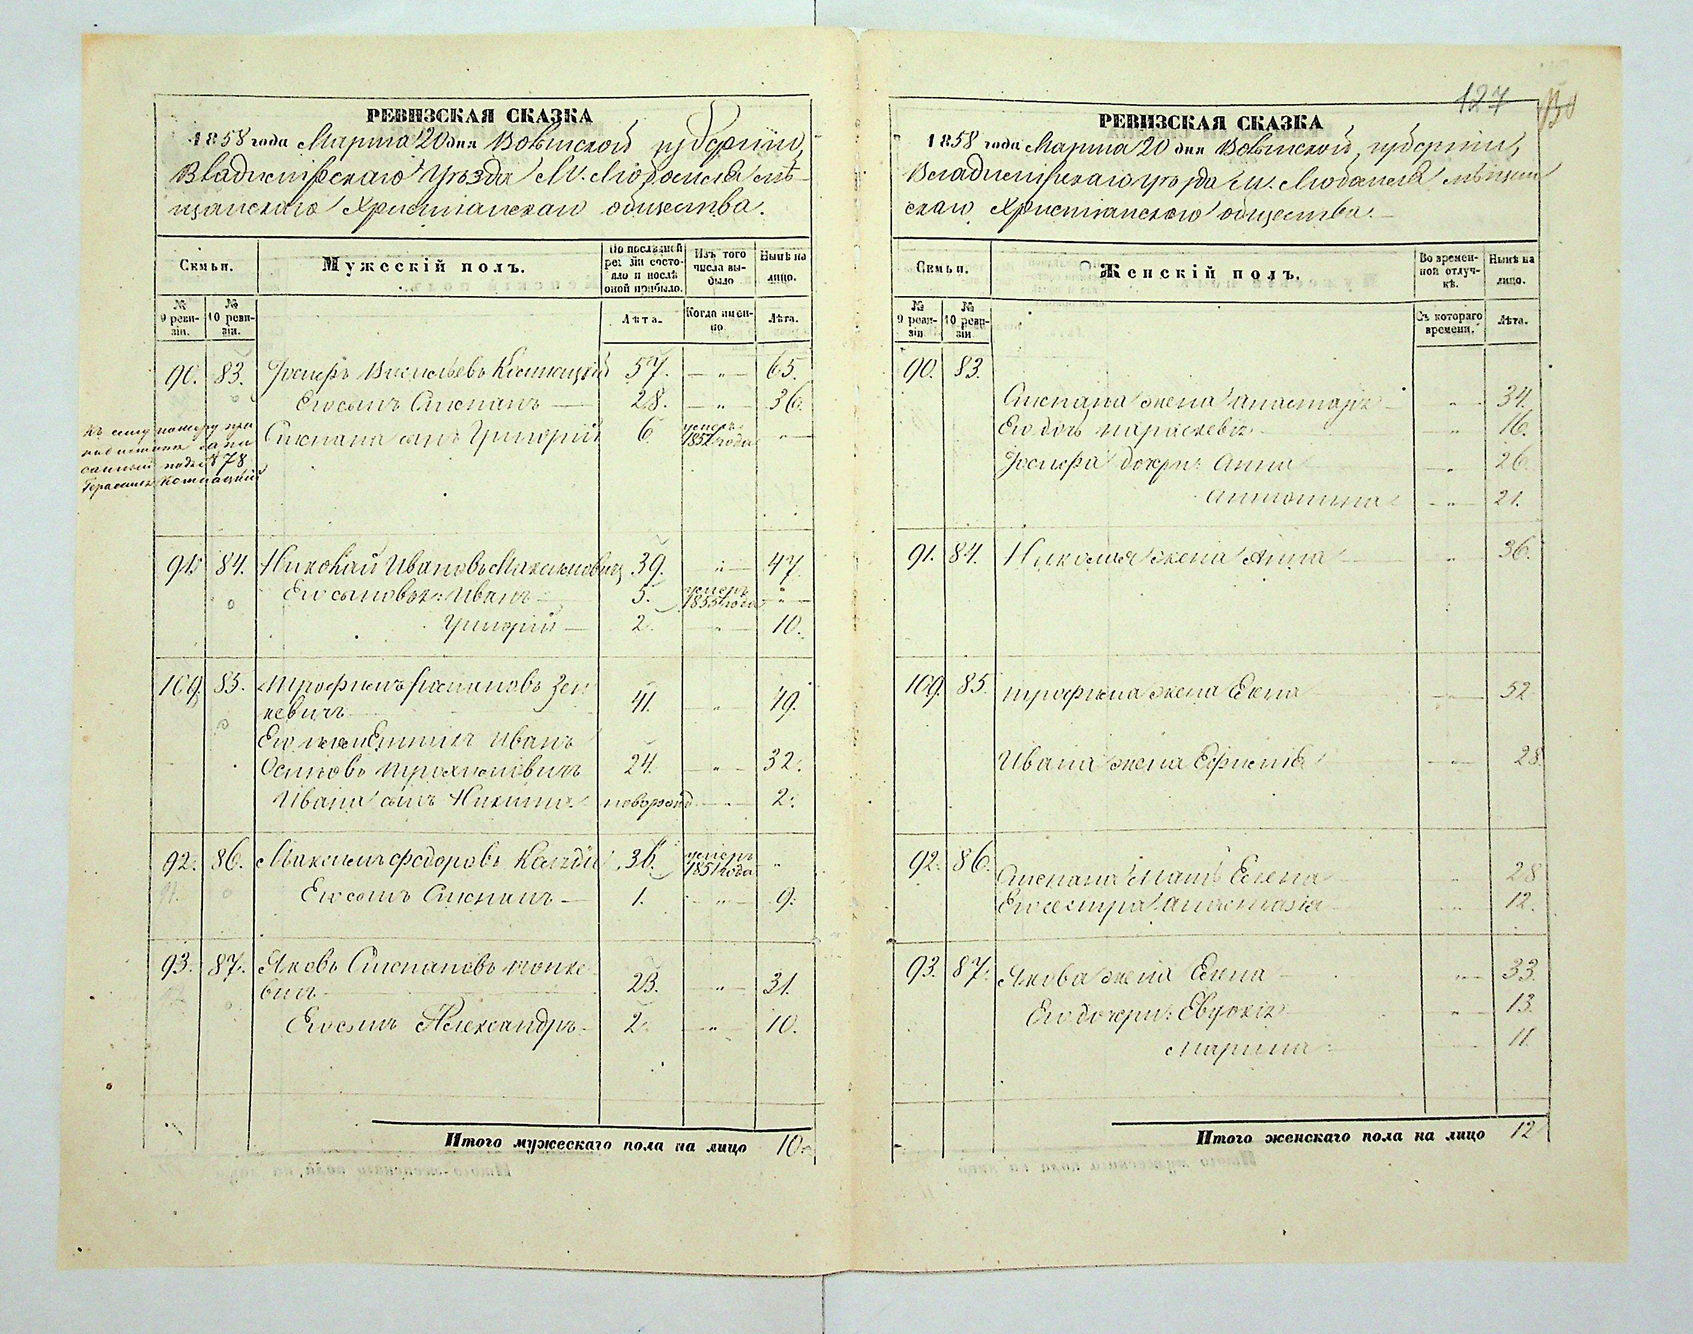 127
РЕВИЗСКАЯ СКАЗКА
1858 года Марта 20 дня Волынской губерніи,
Владимірскаго уѣзда М. Любомля мѣ-
щанскаго Христіанскаго общества.
Семьи.
Мужескій полъ.
По послѣдней ревизіи состояло и послѣ оной прибыло.
Изъ того числа выбыло
Нынѣ на лицо.
№ 9 ревизіи.
№ 10 ревизіи.
Лѣта.
Когда именно
Лѣта.
90. 83. Іосифъ Васильевъ 57. — „ — 65.
Его сынъ Степанъ — 28. — „ — 36.
Степана сынъ Григорій 6. умеръ 1851 года „ —
Къ сему номеру
подъ № 78
91. 84. Николай Ивановъ Максимовичъ 39. „ — 47.
Его сыновья: Иванъ 5. умеръ 1855 года „
Григорій — 2. „ 10.
109. 85. Трофимъ Степановъ Зен
кевичъ 41. „ 49.
Его Иванъ
Осиповъ 24. — „ — 32.
Ивана сынъ Никита новорожд „ 2.
92. 86. Максимъ Федоровъ 36. умеръ 1851 года „
Его сынъ Степанъ — 1. — „ — 9.
93. 87. Яковъ Степановъ
23. — „ — 31.
Его сынъ Александръ — 2. — „ — 10.
Итого мужескаго пола на лицо 10.
РЕВИЗСКАЯ СКАЗКА
1858 года Марта 20 дня Волынской губерніи,
Владимірскаго уѣзда М. Любомля мѣщан
скаго Христіанскаго общества. —
Семьи.
Женскій полъ.
Во временной отлучкѣ.
Нынѣ на лицо.
№ 9 ревизіи
№ 10 ревизіи
Съ котораго времени.
Лѣта.
90. 83.
Степана жена Анастасія — „ — 34.
Его дочь Параскевія — „ — 16.
Іосифа дочери: Анна — „ — 26.
Антонина — „ — 21.
91. 84. Николая жена Анна — „ 36.
109. 85. Трофима жена Елена — „ — 52
Ивана жена Ефимія — „ — 28.
92. 86.
Степана мать Елена — „ 28
Его сестра Анастасія — „ 12.
93. 87. Якова жена Елена — „ — 33.
Его дочери: Евдокія — „ — 13.
Марина — „ — 11.
Итого женскаго пола на лицо 12